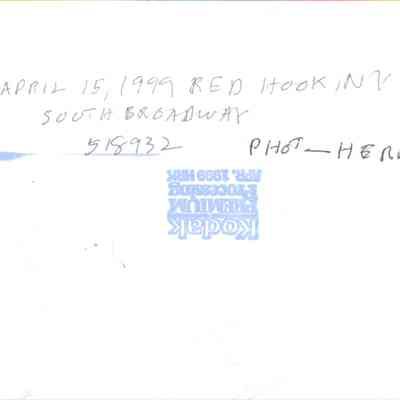 APRIL 15, 1999 RED HOOK, NY
SOUTH BROADWAY
518932 PHOT — HER
Kodak
PREMIUM
Processing
APR. 1999 HRK